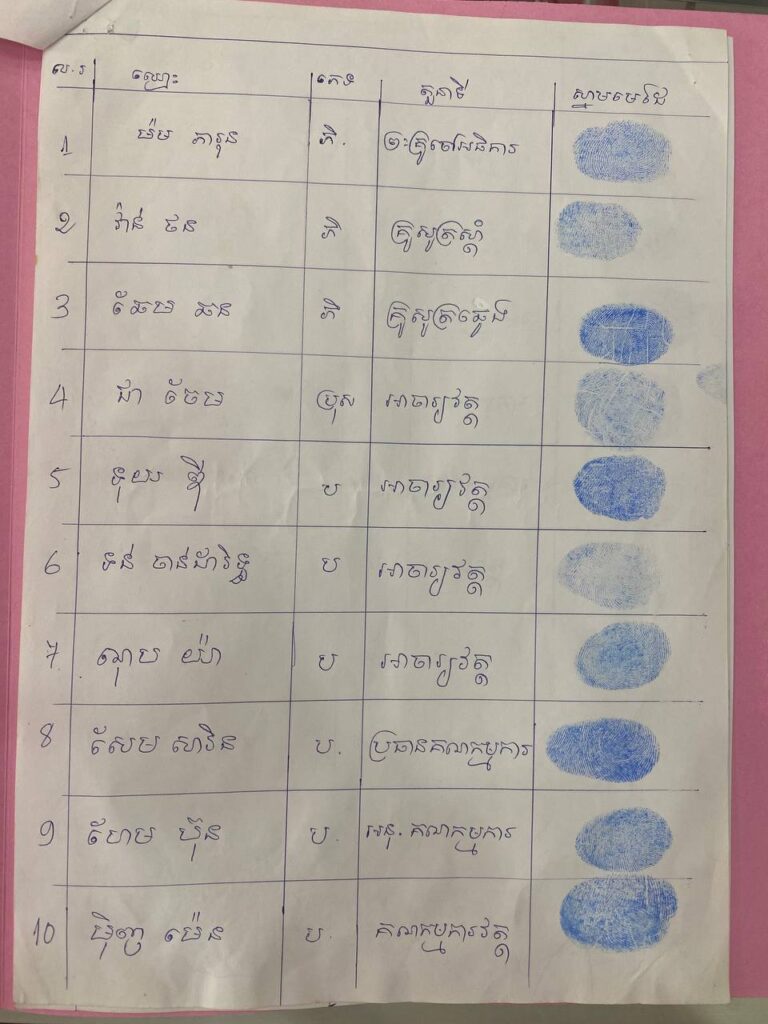 ល.រ ឈ្មោះ ភេទ តួនាទី ស្នាមមេដៃ
1 ម៉ម ភារុន ភិ. ព្រះគ្រូចៅអធិការ
2 វ៉ាន់ ថន ភិ គ្រូសូត្រស្ដាំ
3 ឆែម ឆន ភិ គ្រូសូត្រឆ្វេង
4 ជា ចែម ប្រុស អាចារ្យវត្ត
5 ទុយ ឌី ប អាចារ្យវត្ត
6 ទន់ ចាន់ដារិទ្ធ ប អាចារ្យវត្ត
7 ណុប យ៉ា ប អាចារ្យវត្ត
8 សែម សាវិន ប. ប្រធានគណកម្មការ
9 ហែម ប៊ុន ប. អនុ. គណកម្មការ
10 ម៉ិញ ម៉េន ប. គណកម្មការវត្ត